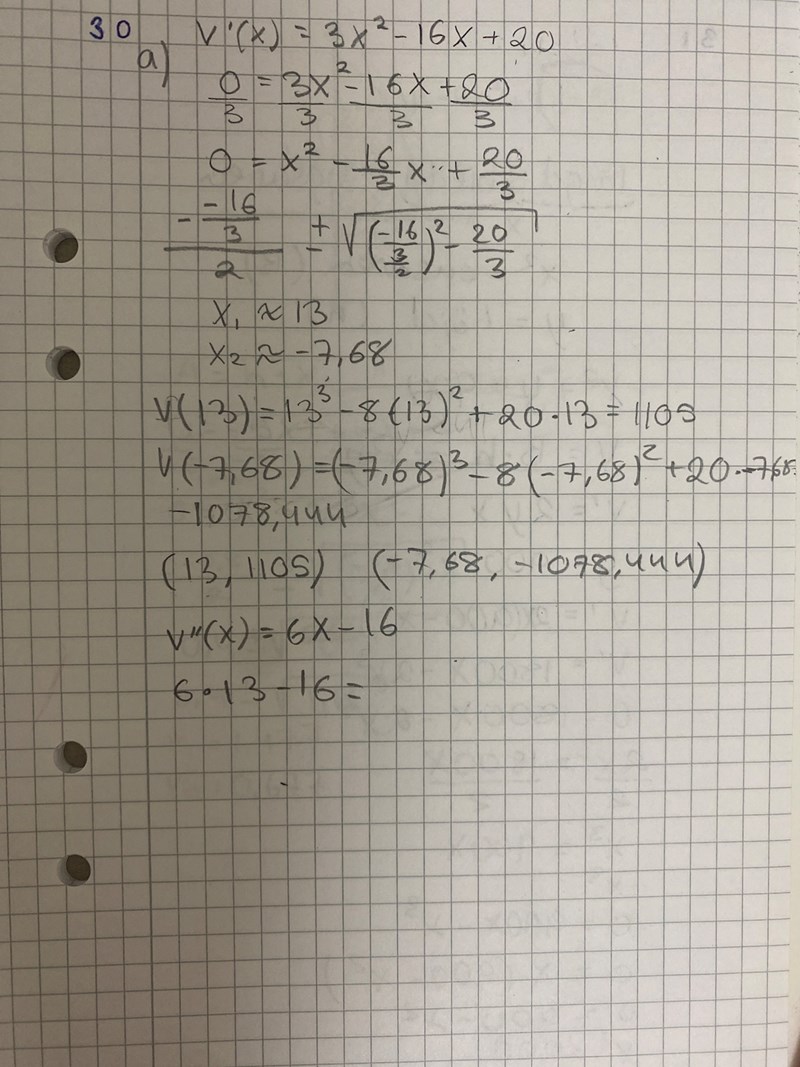 30 V'(x) = 3x² - 16x + 20
a) 0/3 = 3x²/3 - 16x/3 + 20/3
0 = x² - 16/3 x + 20/3
- (-16/3)/2 ± √((-16/3/2)² - 20/3)
x₁ ≈ 13
x₂ ≈ -7,68
V(13) = 13³ - 8(13)² + 20·13 = 1105
V(-7,68) = (-7,68)³ - 8(-7,68)² + 20·-7,68=
-1078,444
(13, 1105) (-7,68, -1078,444)
V''(x) = 6x - 16
6·13 - 16 =